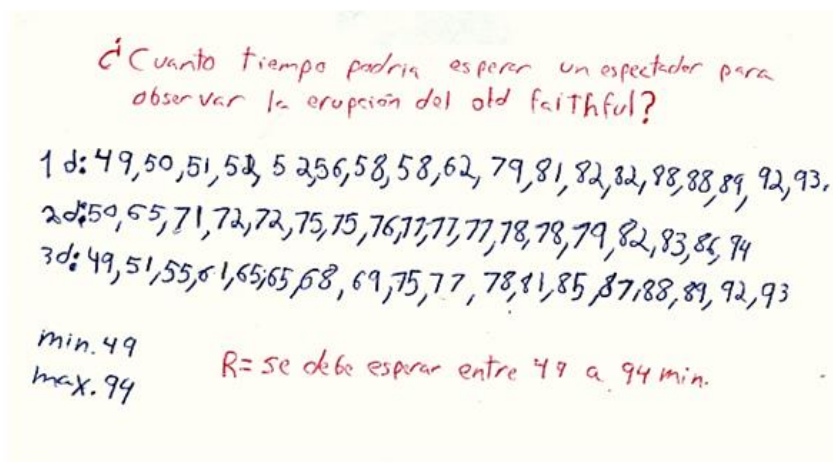 ¿Cuanto tiempo podria esperar un espectador para
observar la erupción del old faithful?
1 d: 49,50,51,52, 52,56,58,58,62, 79,81,82,82,88,88,89, 92,93.
2d:50,65,71,72,72,75,75,76,77,77,77,78,78,79,82,83,86,94
3d: 49,51,55,61,65,65,68, 69,75,77, 78,81,85,87,88,89,92,93
min. 49
max. 94
R= se debe esperar entre 49 a 94 min.